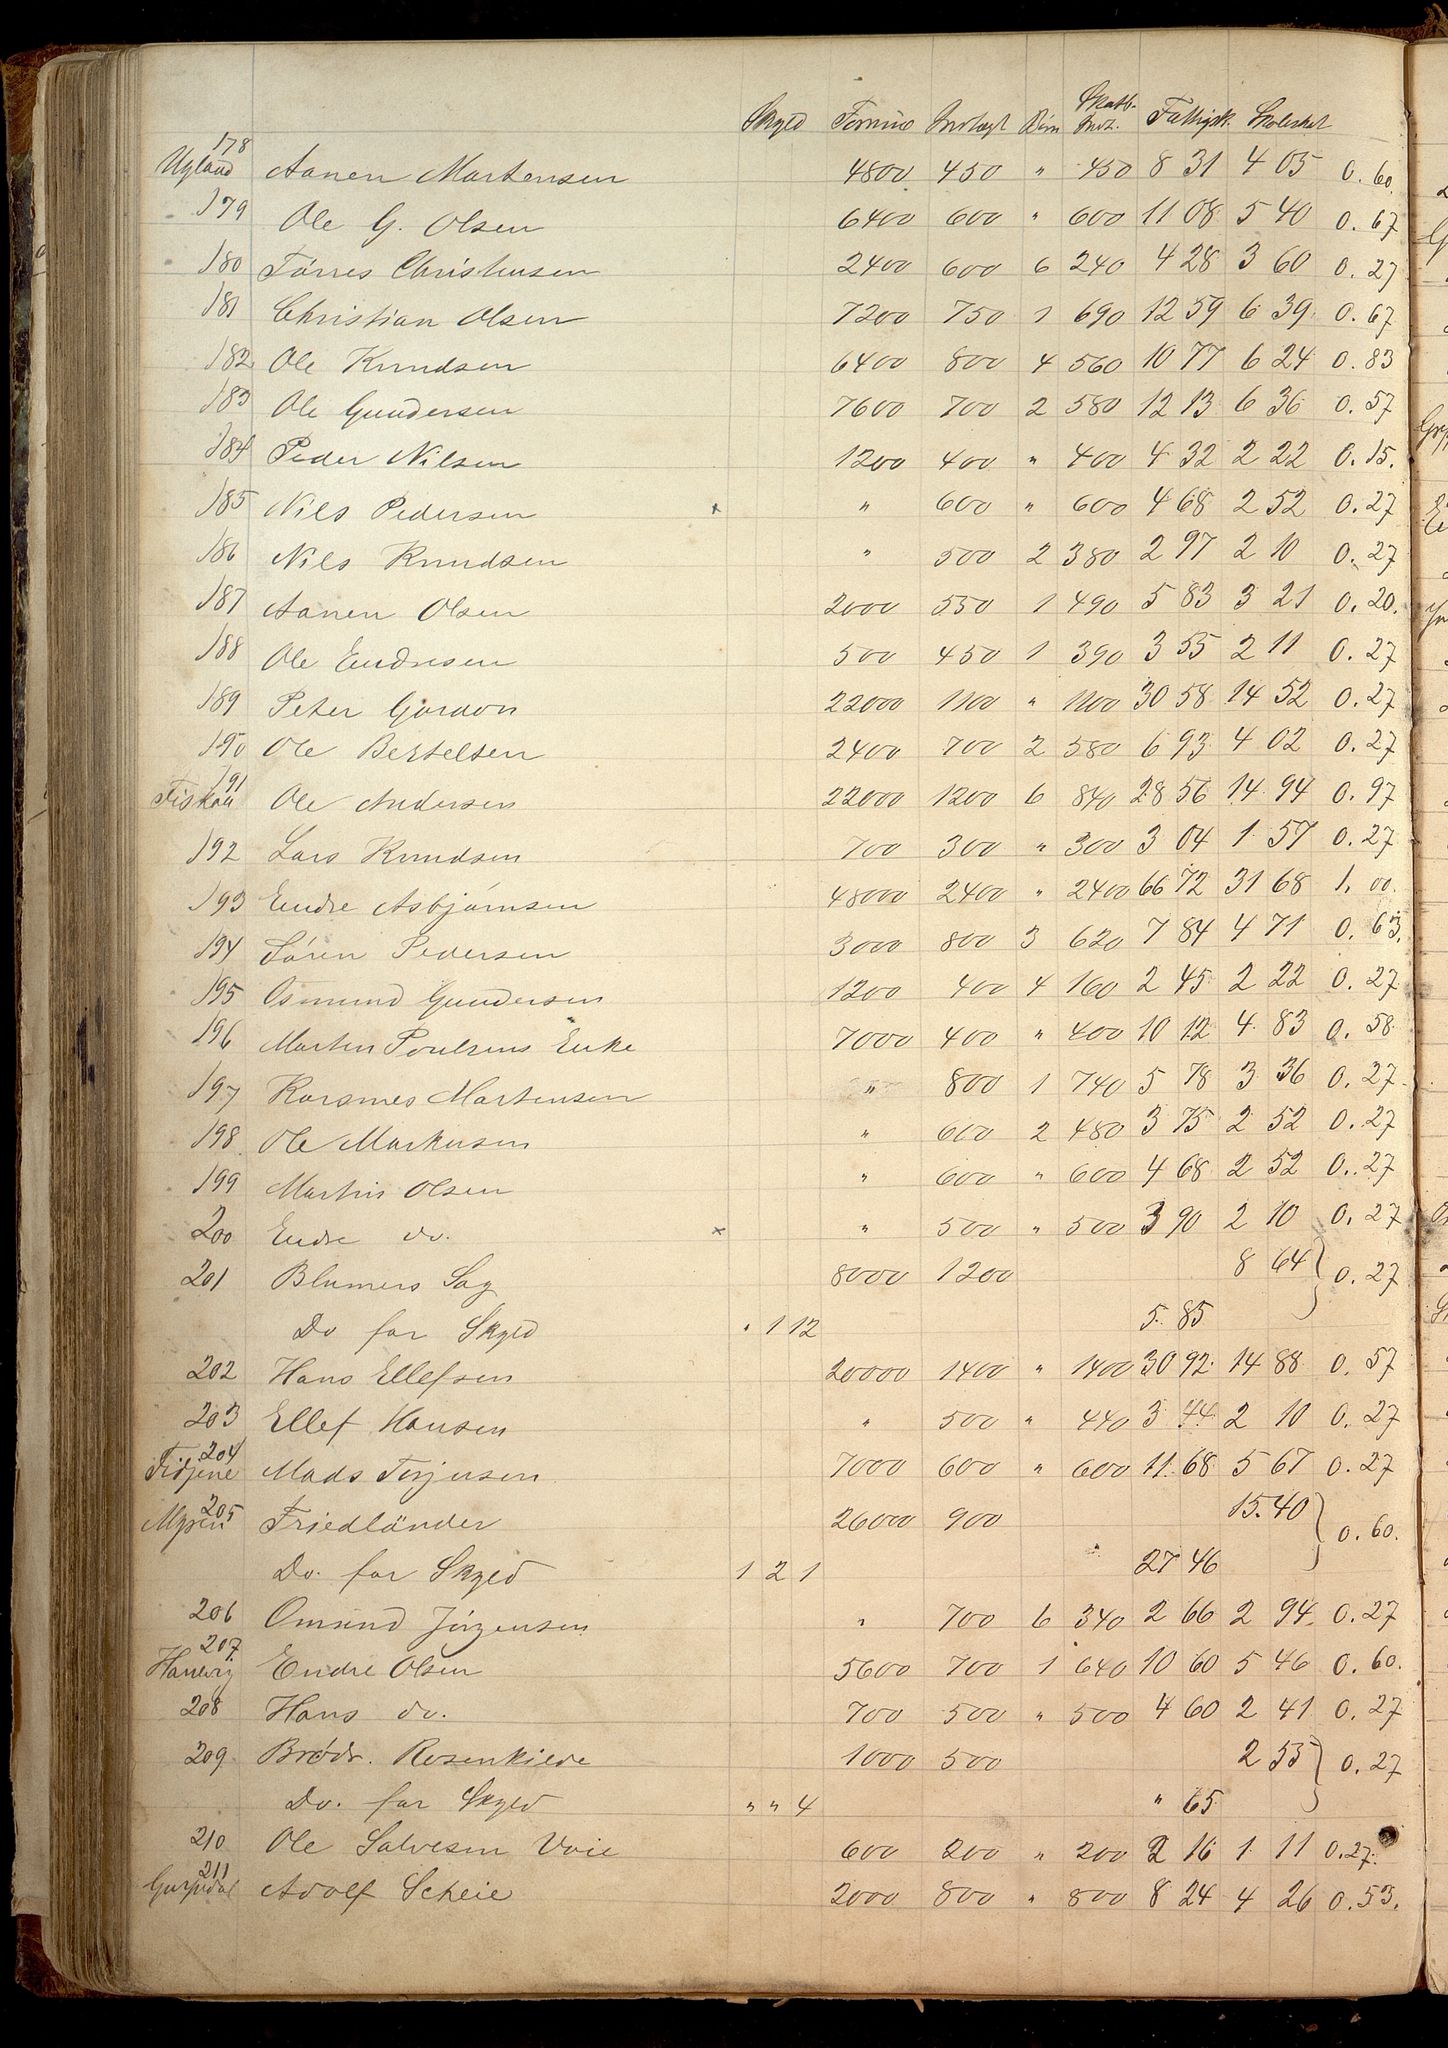 Skyld Formue Indtægt Børn Skatb. Indt. Fattigsk. Skoleskat
Ugland 178 Aanen Martensen 4800 450 " 450 8 31 4 05 0. 60.
179 Ole G. Olsen 6400 600 " 600 11 08 5 40 0. 67
180 Törres Christensen 2400 600 6 240 4 28 3 60 0. 27
181 Christian Olsen 7200 750 1 690 12 59 6 39 0. 67
182 Ole Knudsen 6400 800 4 560 10 77 6 24 0. 83
183 Ole Gundersen 7600 700 2 580 12 13 6 36 0. 57
184 Peder Nilsen 1200 400 " 400 4 32 2 22 0. 15.
185 Nils Pedersen x " 600 " 600 4 68 2 52 0. 27
186 Nils Knudsen " 500 2 380 2 97 2 10 0. 27
187 Aanen Olsen 2000 550 1 490 5 83 3 21 0. 20.
188 Ole Endresen 500 450 1 390 3 55 2 11 0. 27
189 Peter Gordon 22000 1100 " 1100 30 58 14 52 0. 27
190 Ole Bertelsen 2400 700 2 580 6 93 4 02 0. 27
Fiskaa 191 Ole Andersen 22000 1200 6 840 28 56 14 94 0. 97
192 Lars Knudsen 700 300 " 300 3 04 1 57 0. 27
193 Endre Asbjørnsen 48000 2400 " 2400 66 72 31 68 1. 00.
194 Søren Pedersen 3000 800 3 620 7 84 4 71 0. 63.
195 Osmund Gundersen 1200 400 4 160 2 45 2 22 0. 27
196 Morten Poulsens Enke 7000 400 " 400 10 12 4 83 0. 58
197 Rasmus Martensen " 800 1 740 5 78 3 36 0. 27
198 Ole Markusen " 600 2 480 3 75 2 52 0. 27
199 Martin Olsen " 600 " 600 4 68 2 52 0. 27
200 Endre do. x " 500 " 500 3 90 2 10 0. 27
201 Blumers Sag 8000 1200 8 64 } 0. 27
Do for Skyld " 1 12 5. 85
202 Hans Ellefsen 20000 1400 " 1400 30 92 14 88 0. 57
203 Ellef Hansen " 500 " 440 3 44 2 10 0. 27
Fidjene 204 Mads Terjensen 7000 600 " 600 11 68 5 67 0. 27
Myren 205 Friedländer 26000 900 15. 40 } 0. 60.
Do. for Skyld 1 2 1 27 46
206 Omund Jörgensen " 700 6 340 2 66 2 94 0. 27
Hanevig 207 Endre Olsen 5600 700 1 640 10 60 5 46 0. 60.
208 Hans do. 700 500 " 500 4 60 2 41 0. 27
209 Brødr. Rosenkilde 1000 500 2 55 } 0. 27
Do. for Skyld " " 4 " 65
210 Ole Salvesen Voie 600 200 " 200 2 16 1 11 0. 27.
211 Adolf Scheie 2000 800 " 800 8 24 4 26 0. 53.